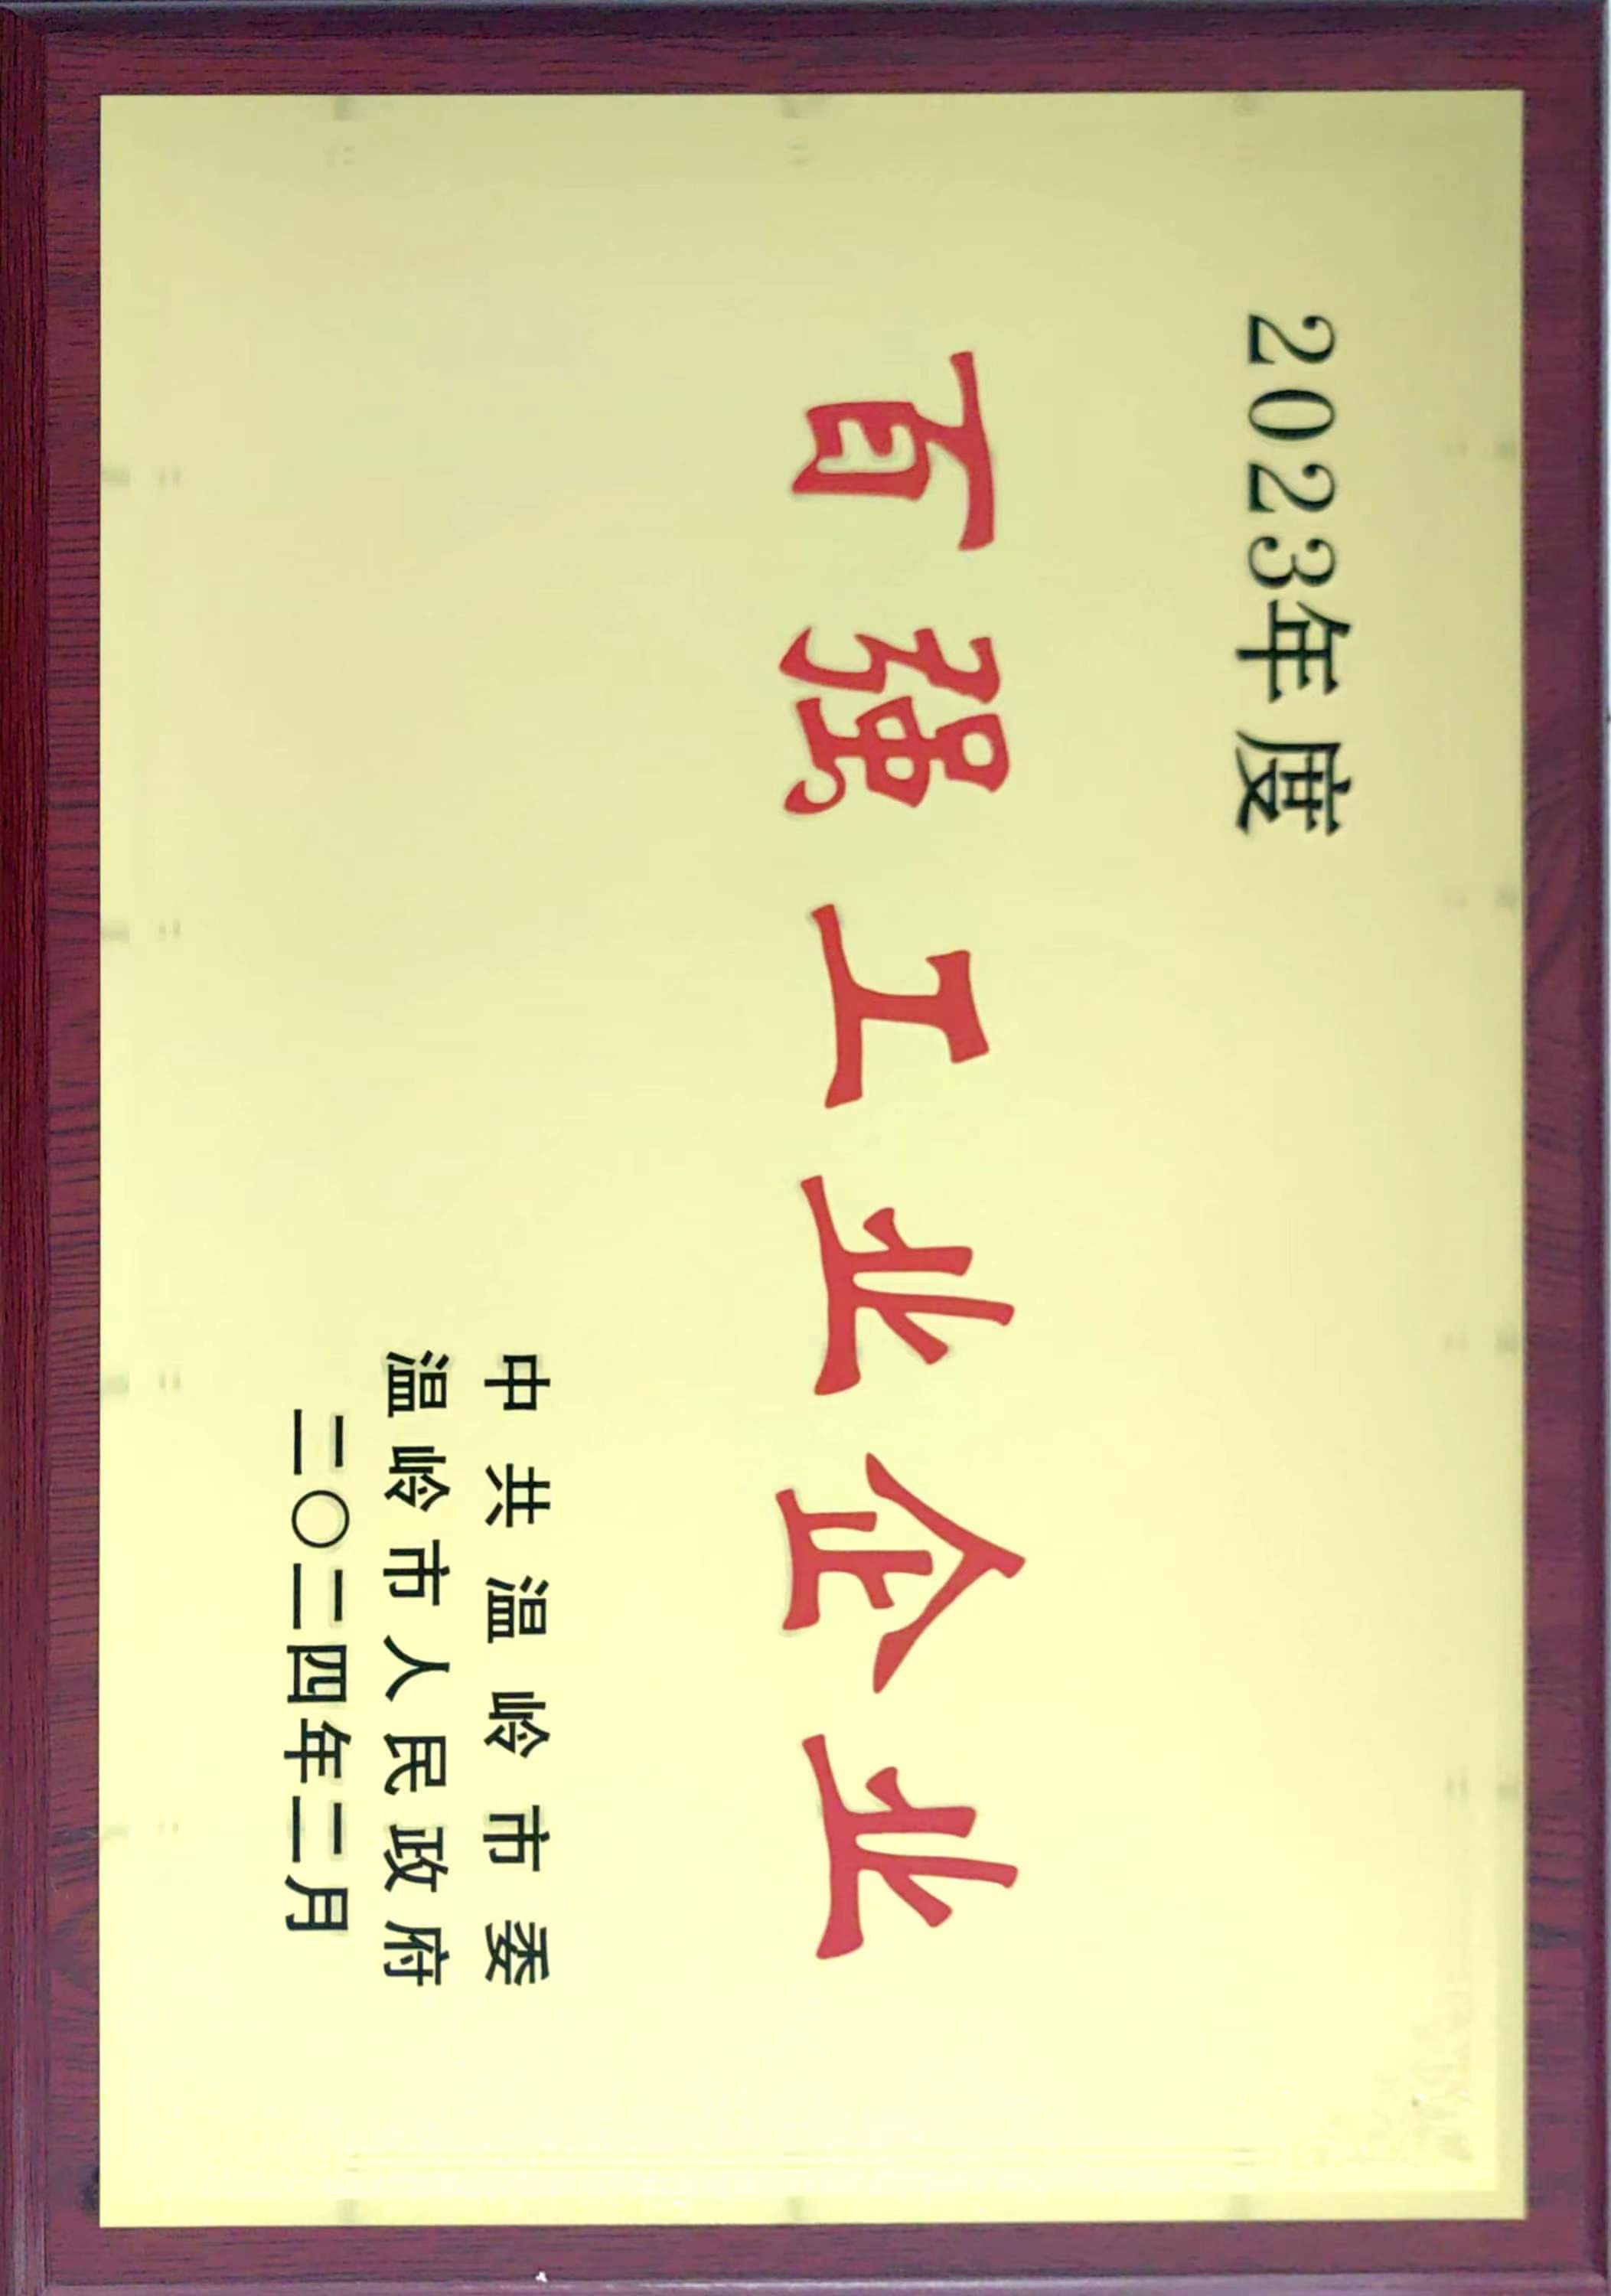 2023年度
百强工业企业
中共温岭市委
温岭市人民政府
二〇二四年二月